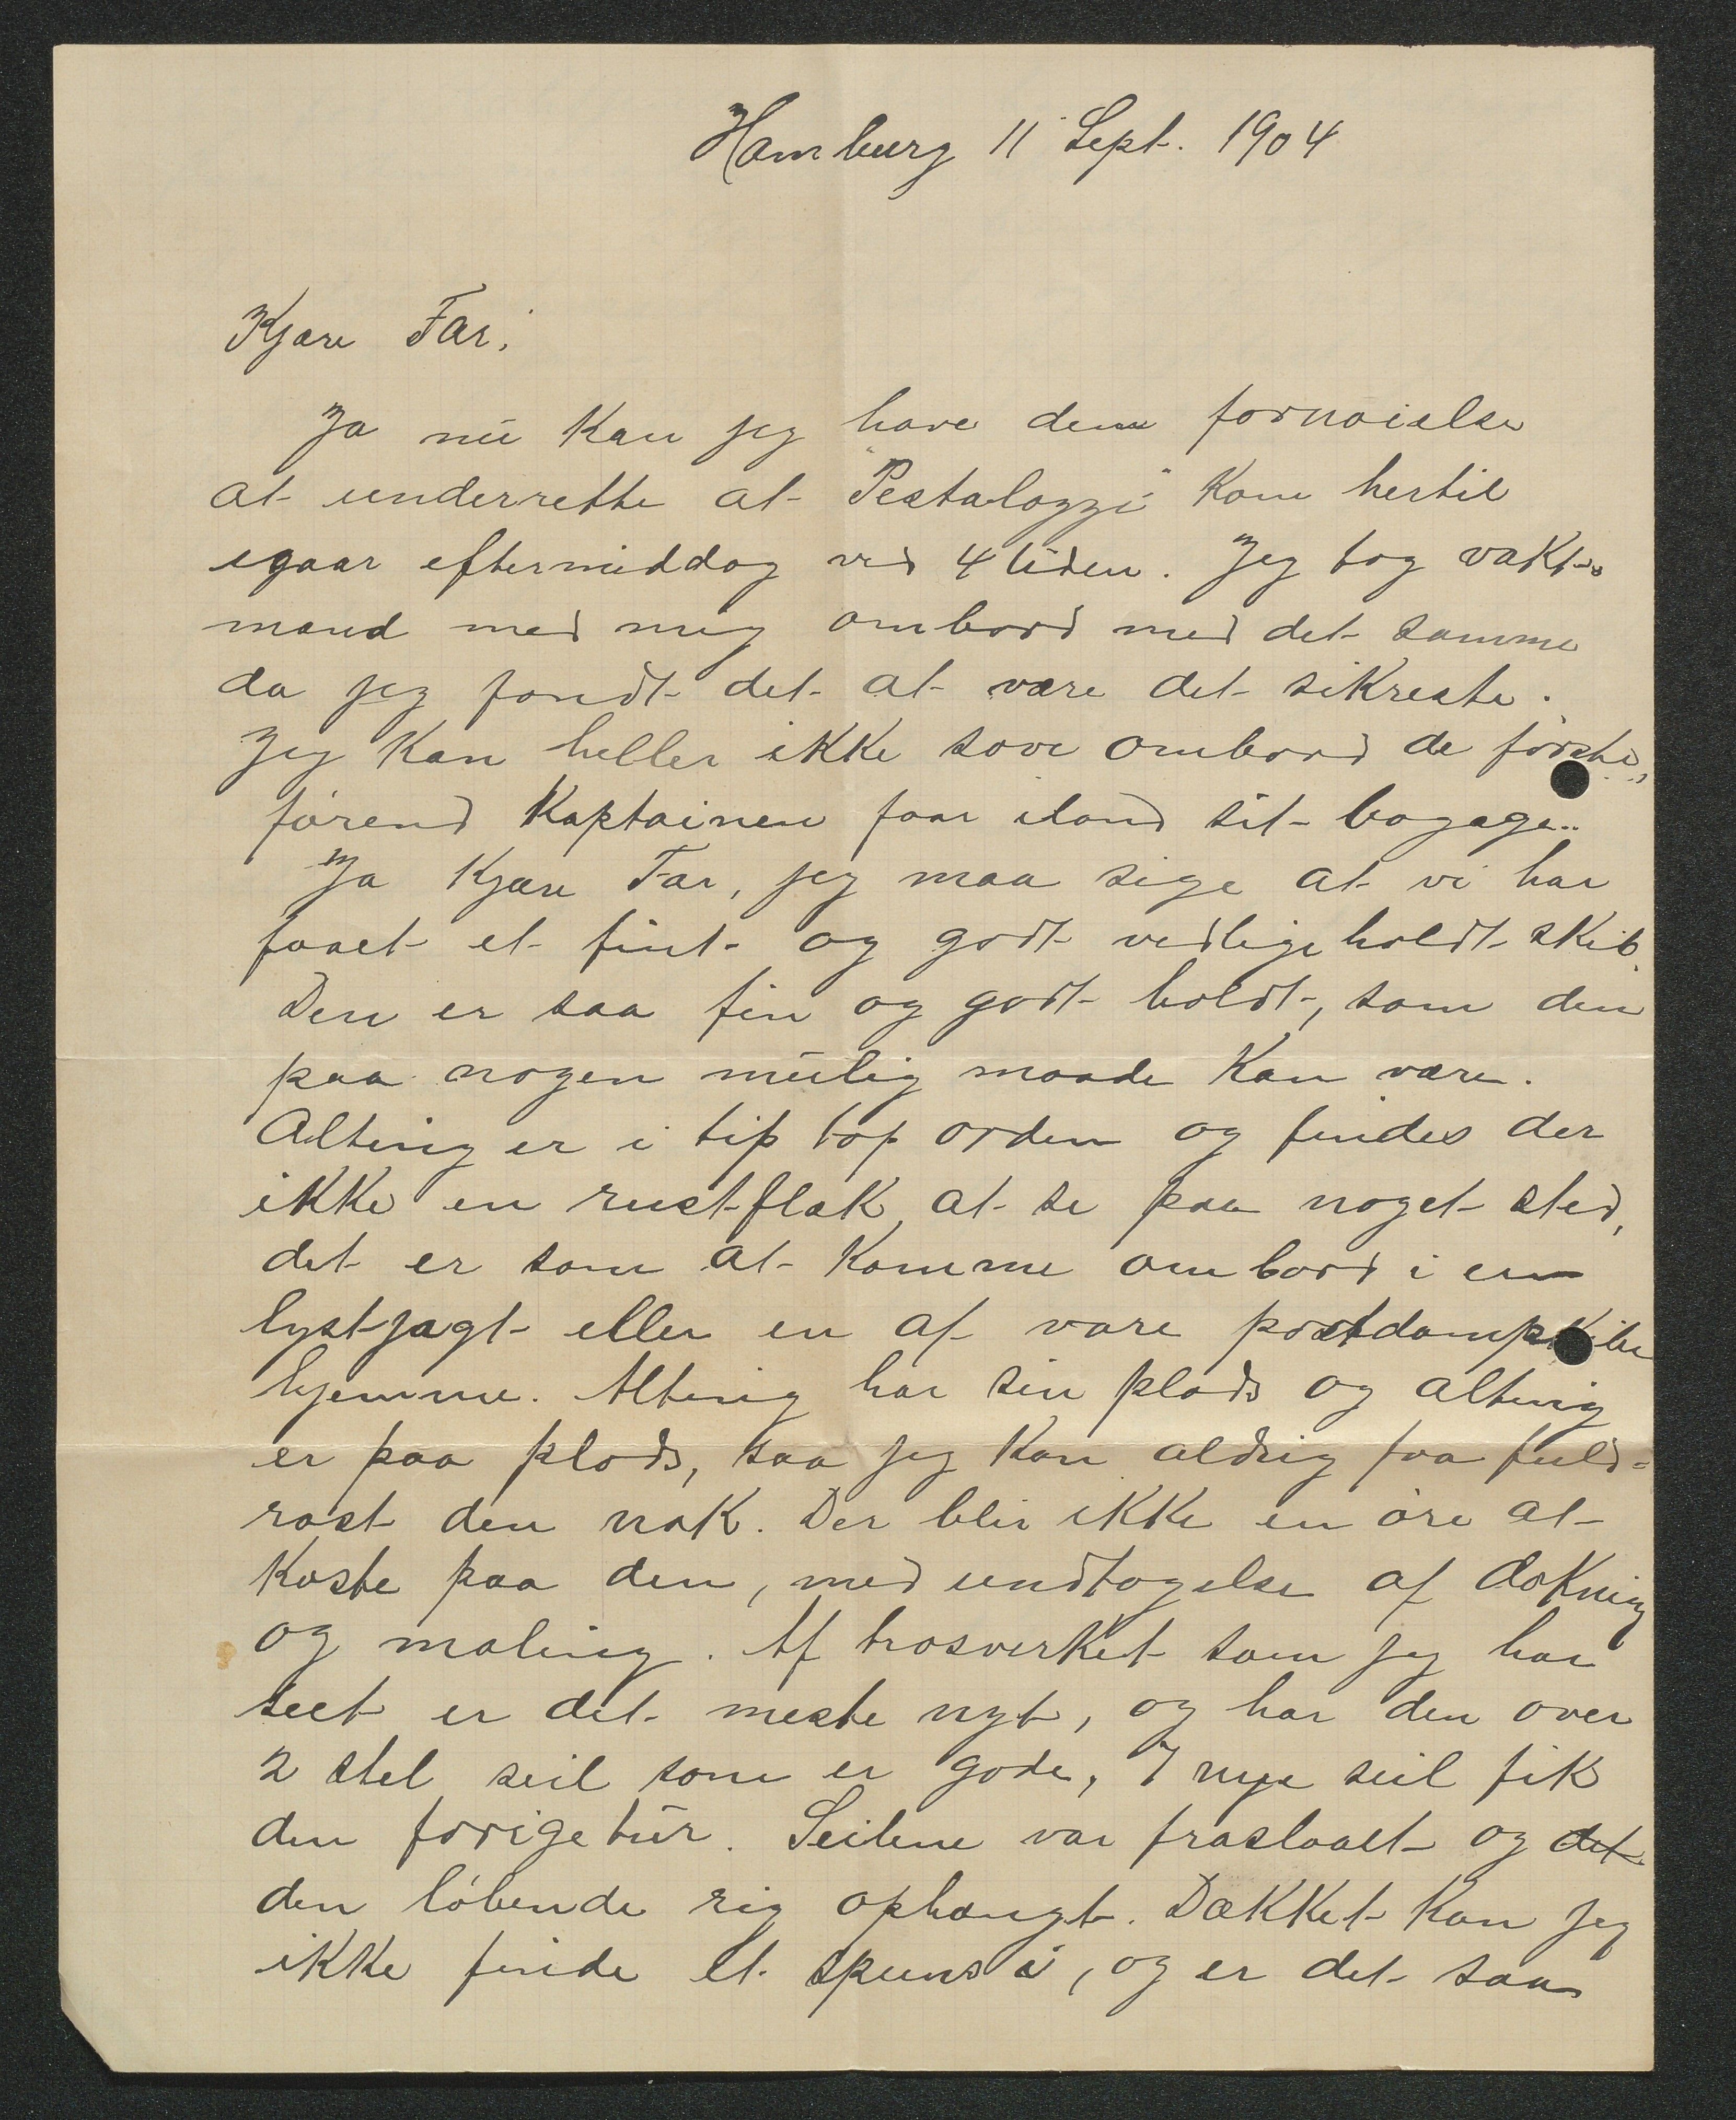 Hamburg 11 Sept. 1904
Kjære Far!
Ja nu kan jeg have den fornøielse
at underrette at "Pestalozzi" kom hertil
igaar eftermiddag ved 4 tiden. Jeg tog vakt-
mand med mig ombord med det samme
da jeg fandt det at være det sikreste.
Jeg kan heller ikke sove ombord de første,
førend Kaptainen faar iland sit bagage.
Ja kjære Far, jeg maa sige at vi har
faaet et fint og godt vedligeholdt skib.
Den er saa fin og godt holdt, som den
paa nogen mulig maade kan være.
Alting er i tip top orden og findes der
ikke en rustflæk at se paa noget sted,
det er som at komme ombord i en
lystjagt eller en af vore postdampskibe
hjemme. Alting har sin plads og alting
er paa plads, saa jeg kan aldrig faa fuld-
rost den nok. Der blir ikke en øre at
koste paa den, med undtagelse af dokning
og maling. Af trosverket som jeg har
seet er det meste nyt, og har den over
2 stel seil som er gode, 7 nye seil fik
den forige tur. Seilene var fraslaaet og det
den løbende rig ophængt. Dækket kan jeg
ikke finde et spuns i, og er det saa